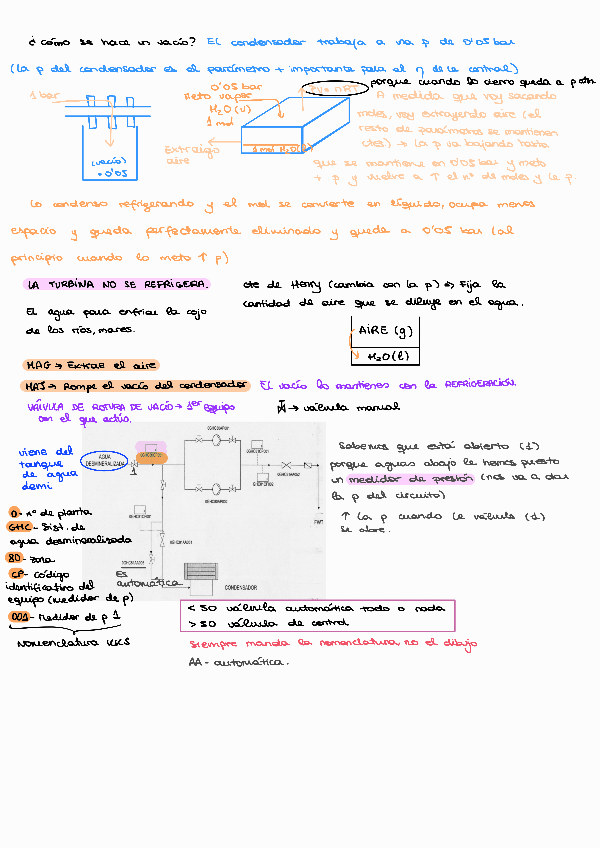 ¿Cómo se hace un vacío? El condensador trabaja a una p de 0'05 bar
(La p del condensador es el parámetro + importante para el η de la central)
porque cuando lo cierro queda a p atm
1 bar
(vacío)
0'05
0'05 bar
Meto vapor
H₂O (v)
1 mol
PV = nRT
Extraigo
aire
1 mol H₂O (l)
A medida que voy sacando
moles, voy extrayendo aire (el
resto de parámetros se mantienen
ctes) → la p va bajando hasta
que se mantiene en 0'05 bar y meto
+ p y vuelve a ↑ el nº de moles y la p.
Lo condenso refrigerando y el mol se convierte en líquido, ocupa menos
espacio y queda perfectamente eliminado y queda a 0'05 bar (al
principio cuando lo meto ↑ p)
LA TURBINA NO SE REFRIGERA.
El agua para enfriar la cojo
de los ríos, mares.
cte de Henry (cambia con la p) → Fija la
cantidad de aire que se diluye en el agua.
AIRE (g)
H₂O (l)
MAG → Extrae el aire
MAJ → Rompe el vacío del condensador
El vacío lo mantienes con la REFRIGERACIÓN.
VÁLVULA DE ROTURA DE VACÍO → 1er equipo
con el que actúo.
→ válvula manual
viene del
tanque
de agua
demi
AGUA
DESMINERALIZADA
1
CONDENSADOR
Es
automática
Sabemos que está abierto (1)
porque aguas abajo le hemos puesto
un medidor de presión (nos va a dar
la p del circuito)
↑ la p cuando la válvula (1)
se abre.
0 - nº de planta
GHC - Sist. de
agua desmineralizada
80 - zona
CP - código
identificativo del
equipo (medidor de p)
001 - Medidor de p 1
Nomenclatura KKS
< 50 válvula automática todo o nada
> 50 válvula de control
Siempre manda la nomenclatura, no el dibujo
AA - automática.